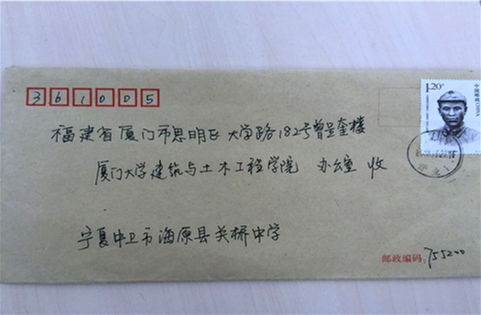 361005
1.20元
中国邮政 CHINA
福建省厦门市思明区大学路182号曾呈奎楼
厦门大学建筑与土木工程学院 办公室 收
宁夏中卫市海原县关桥中学
邮政编码:755200